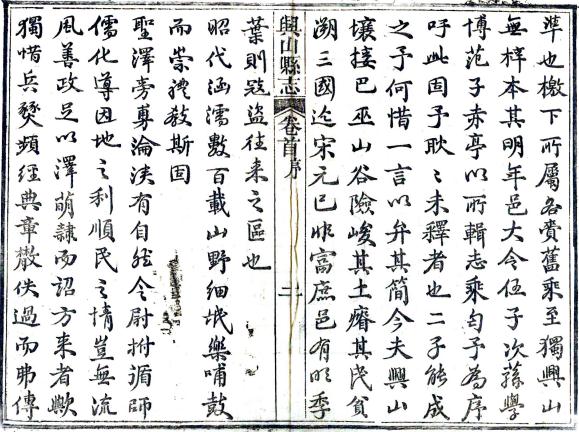 準也檄下所屬各賫舊乘至獨興山
無梓本其明年邑大令伍子次蓀學
博范子赤亭以所輯志乘匄予為序
吁此固予耿〻未釋者也二子能成
之予何惜一言以弁其簡今夫興山
壤接巴巫山谷險峻其土瘠其民貧
溯三國迄宋元已非富庶邑有明季
興山縣志 卷首序 二
葉則遂盜往来之區也
昭代涵濡數百載山野細氓樂哺鼓
而崇禮敎斯固
聖澤旁尃淪浹有自然令尉拊循師
儒化導因地之利順民之情豈無流
風善政足以澤萌隷而詔方来者歟
獨惜兵燹頻經典章散佚過而弗傳